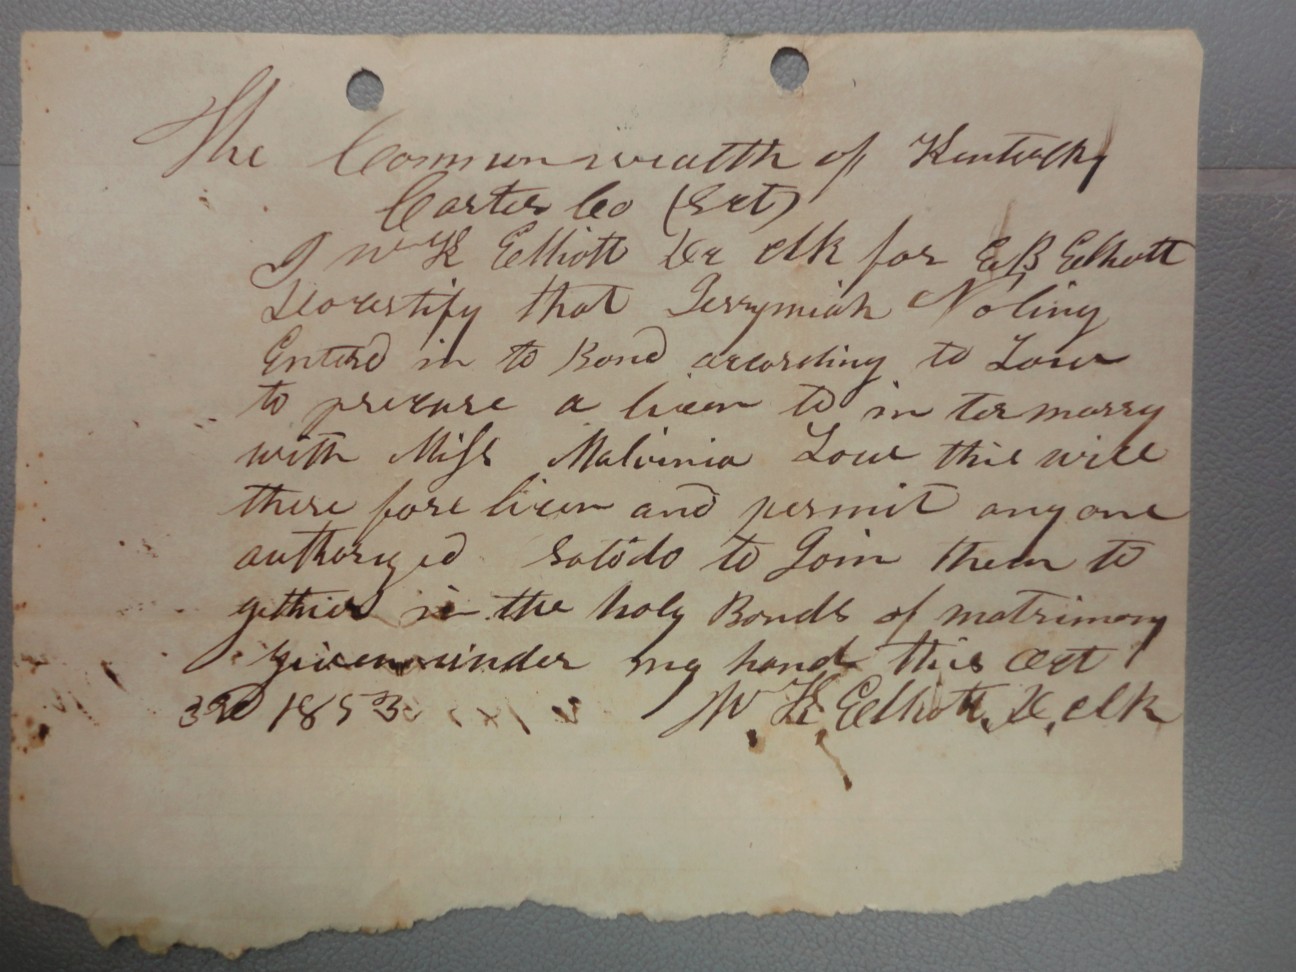 The Commonwealth of Kentucky
Carter Co (Sct)
I W K Elliott De clk for E B Elliott
Do certify that Jerrymiah Noling
Enterd in to Bond according to Low
to precure a licen to in ter marry
with Miss Malvinia Low this will
there fore licen and permit any one
authorized so to do to Join them to
gether in the holy Bonds of matrimony
given under my hand this Oct
3rd 1853 W K Elliott D clk